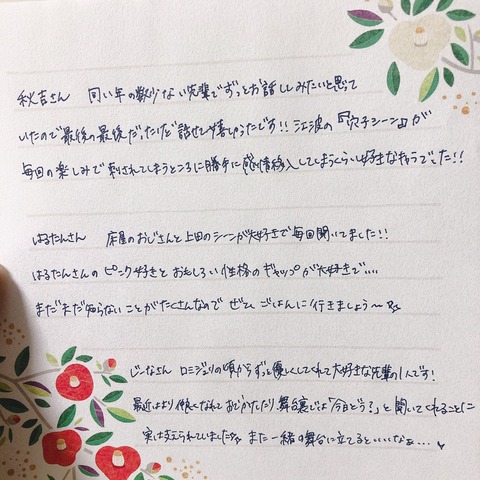 秋吉さん 同い年の数少ない先輩でずっとお話ししてみたいと思って
いたので最後の最後だったけど話せて嬉しかったです!! 江波の『穴子シーン』が
毎回の楽しみで刺されてしまうところに勝手に感情移入してしまうくらい好きなキャラでした!!
はるたんさん 床屋のおじさんと上田のシーンが大好きで毎回聞いてました!!
はるたんさんのピンク好きとおもしろい性格のギャップが大好きで....
まだまだ知らないことがたくさんなので ぜひ ごはんに行きましょう〜
じーなさん ロミジュリの頃からずっと優しくしてくれて大好きな先輩の1人です!
最近はより仲良くなれておでかけしたり、舞台裏では「今日どう?」と聞いてくれることに
実は支えられていました また一緒の舞台に立てるといいなぁ...